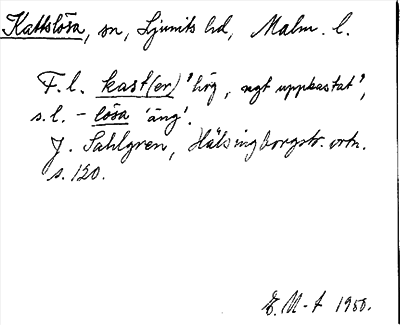 Kattslösa, sn, Ljunits hd, Malm. l.
F.l. kast(er) 'hög, ngt uppkastat',
s.l. - lösa 'äng'.
J. Sahlgren, Hälsingborgstr. ortn.
s. 120.
E. M-t 1950.